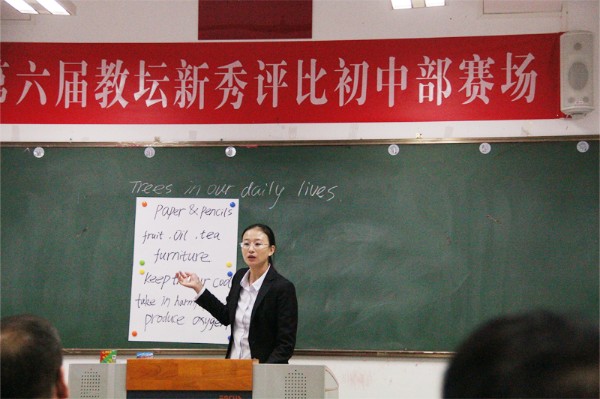 第六届教坛新秀评比初中部赛场
Trees in our daily lives.
Paper & pencils
fruit . oil . tea
furniture
keep
take in
produce oxygen